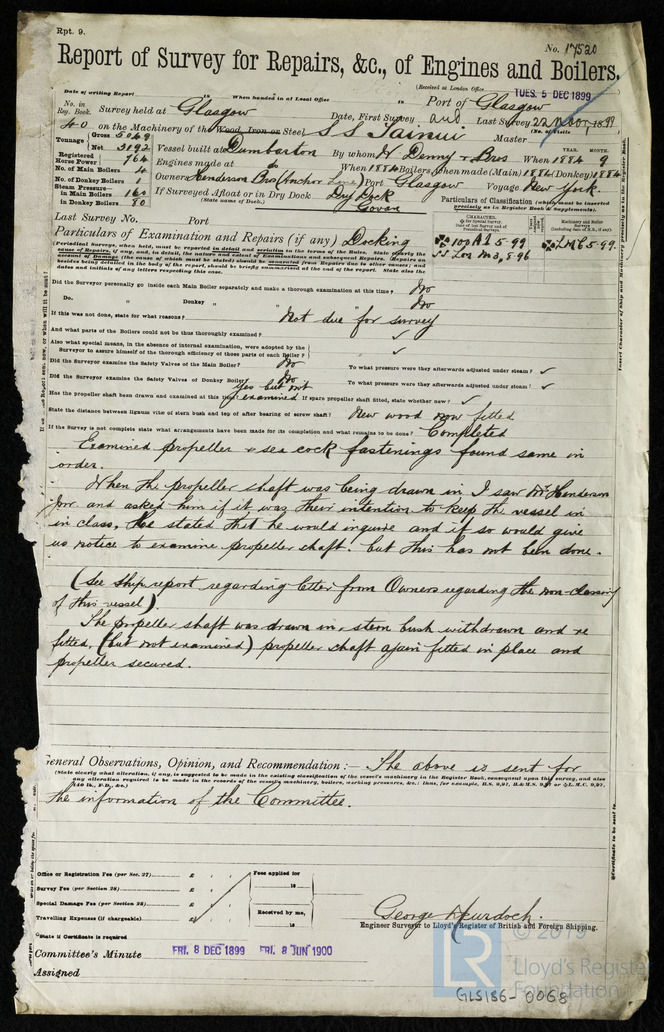 Rpt. 9.
No. 17520
Report of Survey for Repairs, &c., of Engines and Boilers.
(Received at London Office TUES. 5 DEC 1899
Date of writing Report When handed in at Local Office Port of Glasgow
No. in Reg. Book. Survey held at Glasgow Date, First Survey and Last Survey 22 Nov, 1899
40 on the Machinery of the Wood, Iron or Steel S S Tainui Master (No. of Visits
Tonnage Gross 5069 Net 3192
Vessel built at Dumbarton By whom W Denny & Bros When 1884 9
YEAR. MONTH.
Registered Horse Power 764
Engines made at do When 1884 Boilers, when made (Main) 1884 (Donkey) 1884
No. of Main Boilers 4
Owners Henderson Bros (Anchor Line) Port Glasgow Voyage New York.
No. of Donkey Boilers
Steam Pressure in Main Boilers 160
in Donkey Boilers 80
If Surveyed Afloat or in Dry Dock Dry Dock
(State name of Dock.) Govan
Particulars of Classification (which must be inserted precisely as in Register Book & Supplements).
Last Survey No. Port
CHARACTER.
Machinery and Boiler Surveys
100 A1 5.99
SS Lon No 3, 8.96
LMC 5.99.
Particulars of Examination and Repairs (if any) Docking
Did the Surveyor personally go inside each Main Boiler separately and make a thorough examination at this time? No
Do. " Donkey " " " No
If this was not done, state for what reasons? Not due for survey
And what parts of the Boilers could not be thus thoroughly examined? ✓
Also what special means, in the absence of internal examination, were adopted by the Surveyor to assure himself of the thorough efficiency of those parts of each Boiler? ✓
Did the Surveyor examine the Safety Valves of the Main Boiler? No To what pressure were they afterwards adjusted under steam? ✓
Did the Surveyor examine the Safety Valves of Donkey Boiler? No To what pressure were they afterwards adjusted under steam? ✓
Has the propeller shaft been drawn and examined at this time? Yes but not examined If spare propeller shaft fitted, state whether new? ✓
State the distance between lignum vitæ of stern bush and top of after bearing of screw shaft? New wood now fitted
If the Survey is not complete state what arrangements have been made for its completion and what remains to be done? Completed
Examined propeller & sea cock fastenings found same in
order.
When the propeller shaft was being drawn in I saw Mr Henderson
Jnr. and asked him if it was their intention to keep the vessel in
in class, He stated that he would inquire and if so would give
us notice to examine propeller shaft. but this has not been done.
(See Ship report regarding letter from Owners regarding the non-classing
of this vessel).
The propeller shaft was drawn in, stern bush withdrawn and re
fitted, (but not examined) propeller shaft again fitted in place and
propeller secured.
General Observations, Opinion, and Recommendation:— The above is sent for
(State clearly what alteration, if any, is suggested to be made in the existing classification of the vessel's machinery in the Register Book, consequent upon this survey, and also
any alteration required to be made in the records of the vessel's machinery, boilers, working pressures, &c.; thus, for example, B.S. 9,97, B.&M.S. 9,97 or L.M.C. 9,97, 140 lb., F.D., &c.)
the information of the Committee.
Office or Registration Fee (per Sec. 27) £ : : Fees applied for
Survey Fee (per Section 28) £ : : 18
Special Damage Fee (per Section 28) £ : : Received by me,
Travelling Expenses (if chargeable) £ : : 18
George Murdoch.
Engineer Surveyor to Lloyd's Register of British and Foreign Shipping.
State if Certificate is required
Committee's Minute FRI. 8 DEC 1899 FRI. 8 JUN 1900
Assigned
LR
© 2019
Lloyd's Register
Foundation
GLS186-0068